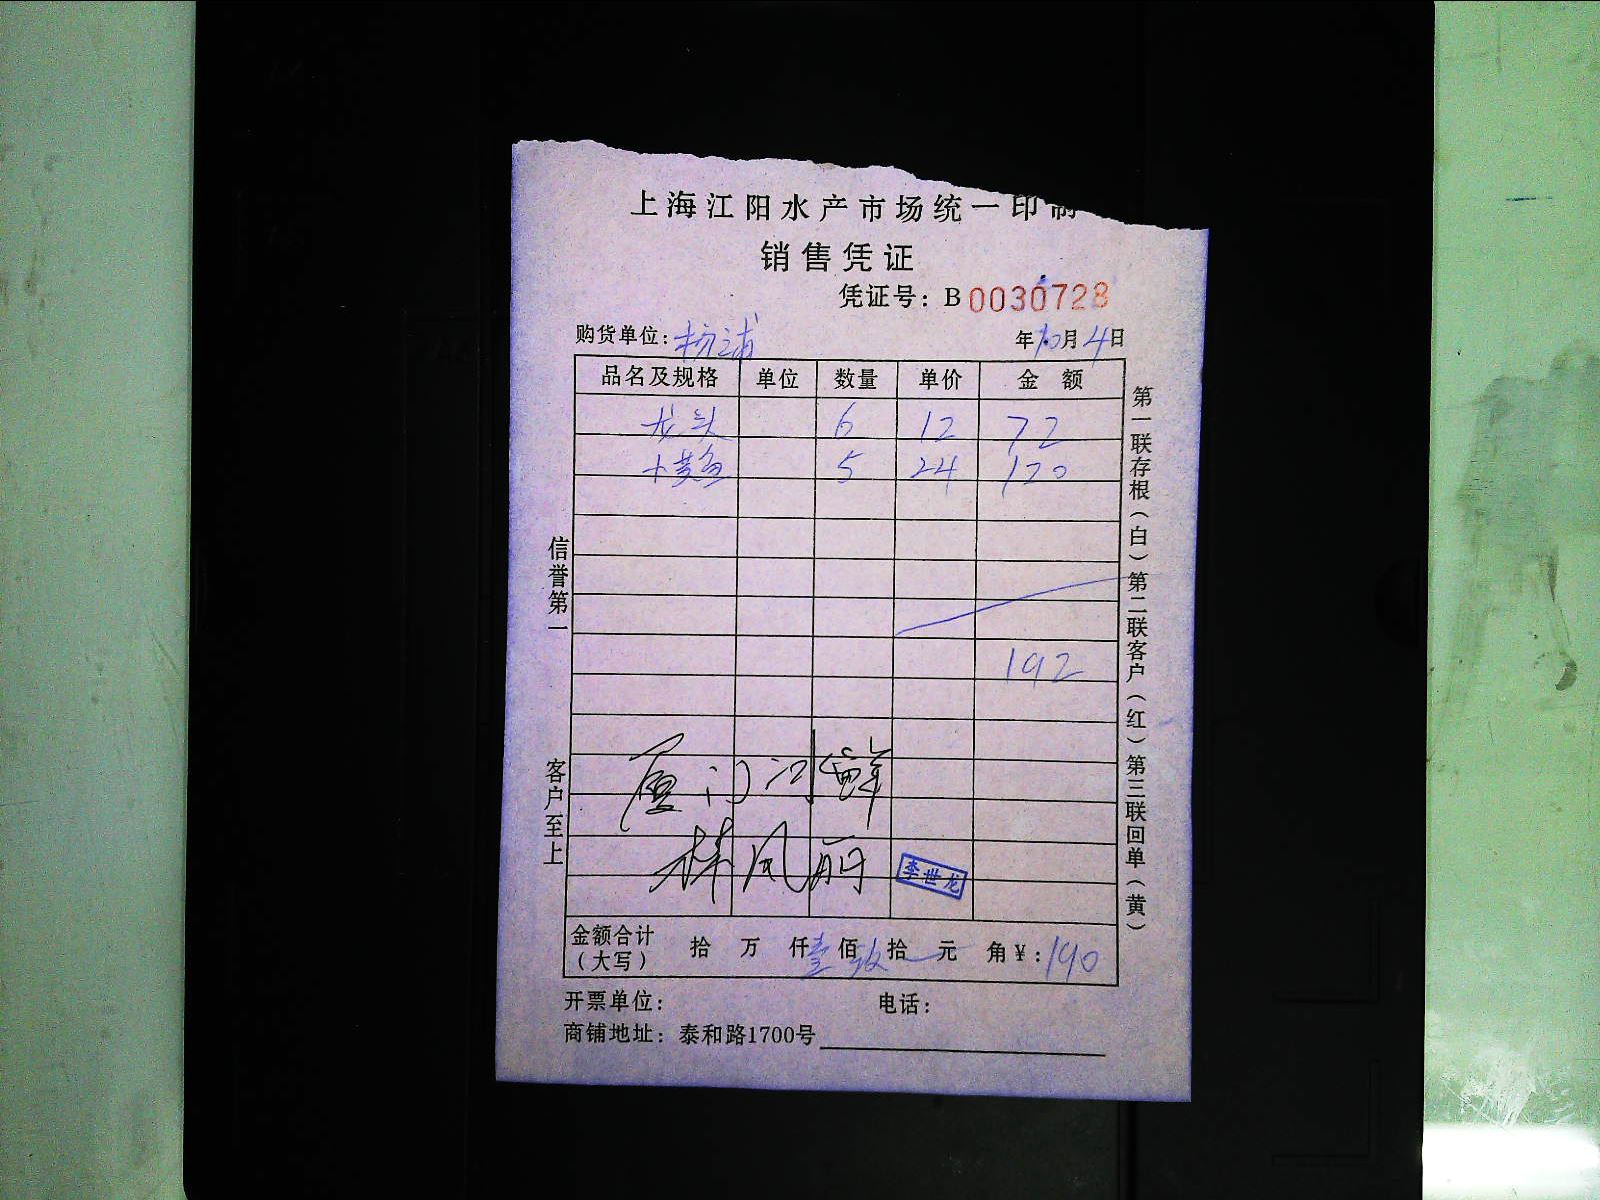 上海江阳水产市场统一印制
销售凭证
凭证号：B0030728
购货单位：杨浦 年10月4日
品名及规格 单位 数量 单价 金额
龙头 6 12 72
小黄鱼 5 24 120
192
厦门海鲜
林凤丽
李世龙
金额合计（大写） 拾 万 仟壹佰玖拾 元 角¥：190
开票单位： 电话：
商铺地址：泰和路1700号
信誉第一
客户至上
第一联存根（白）第二联客户（红）第三联回单（黄）